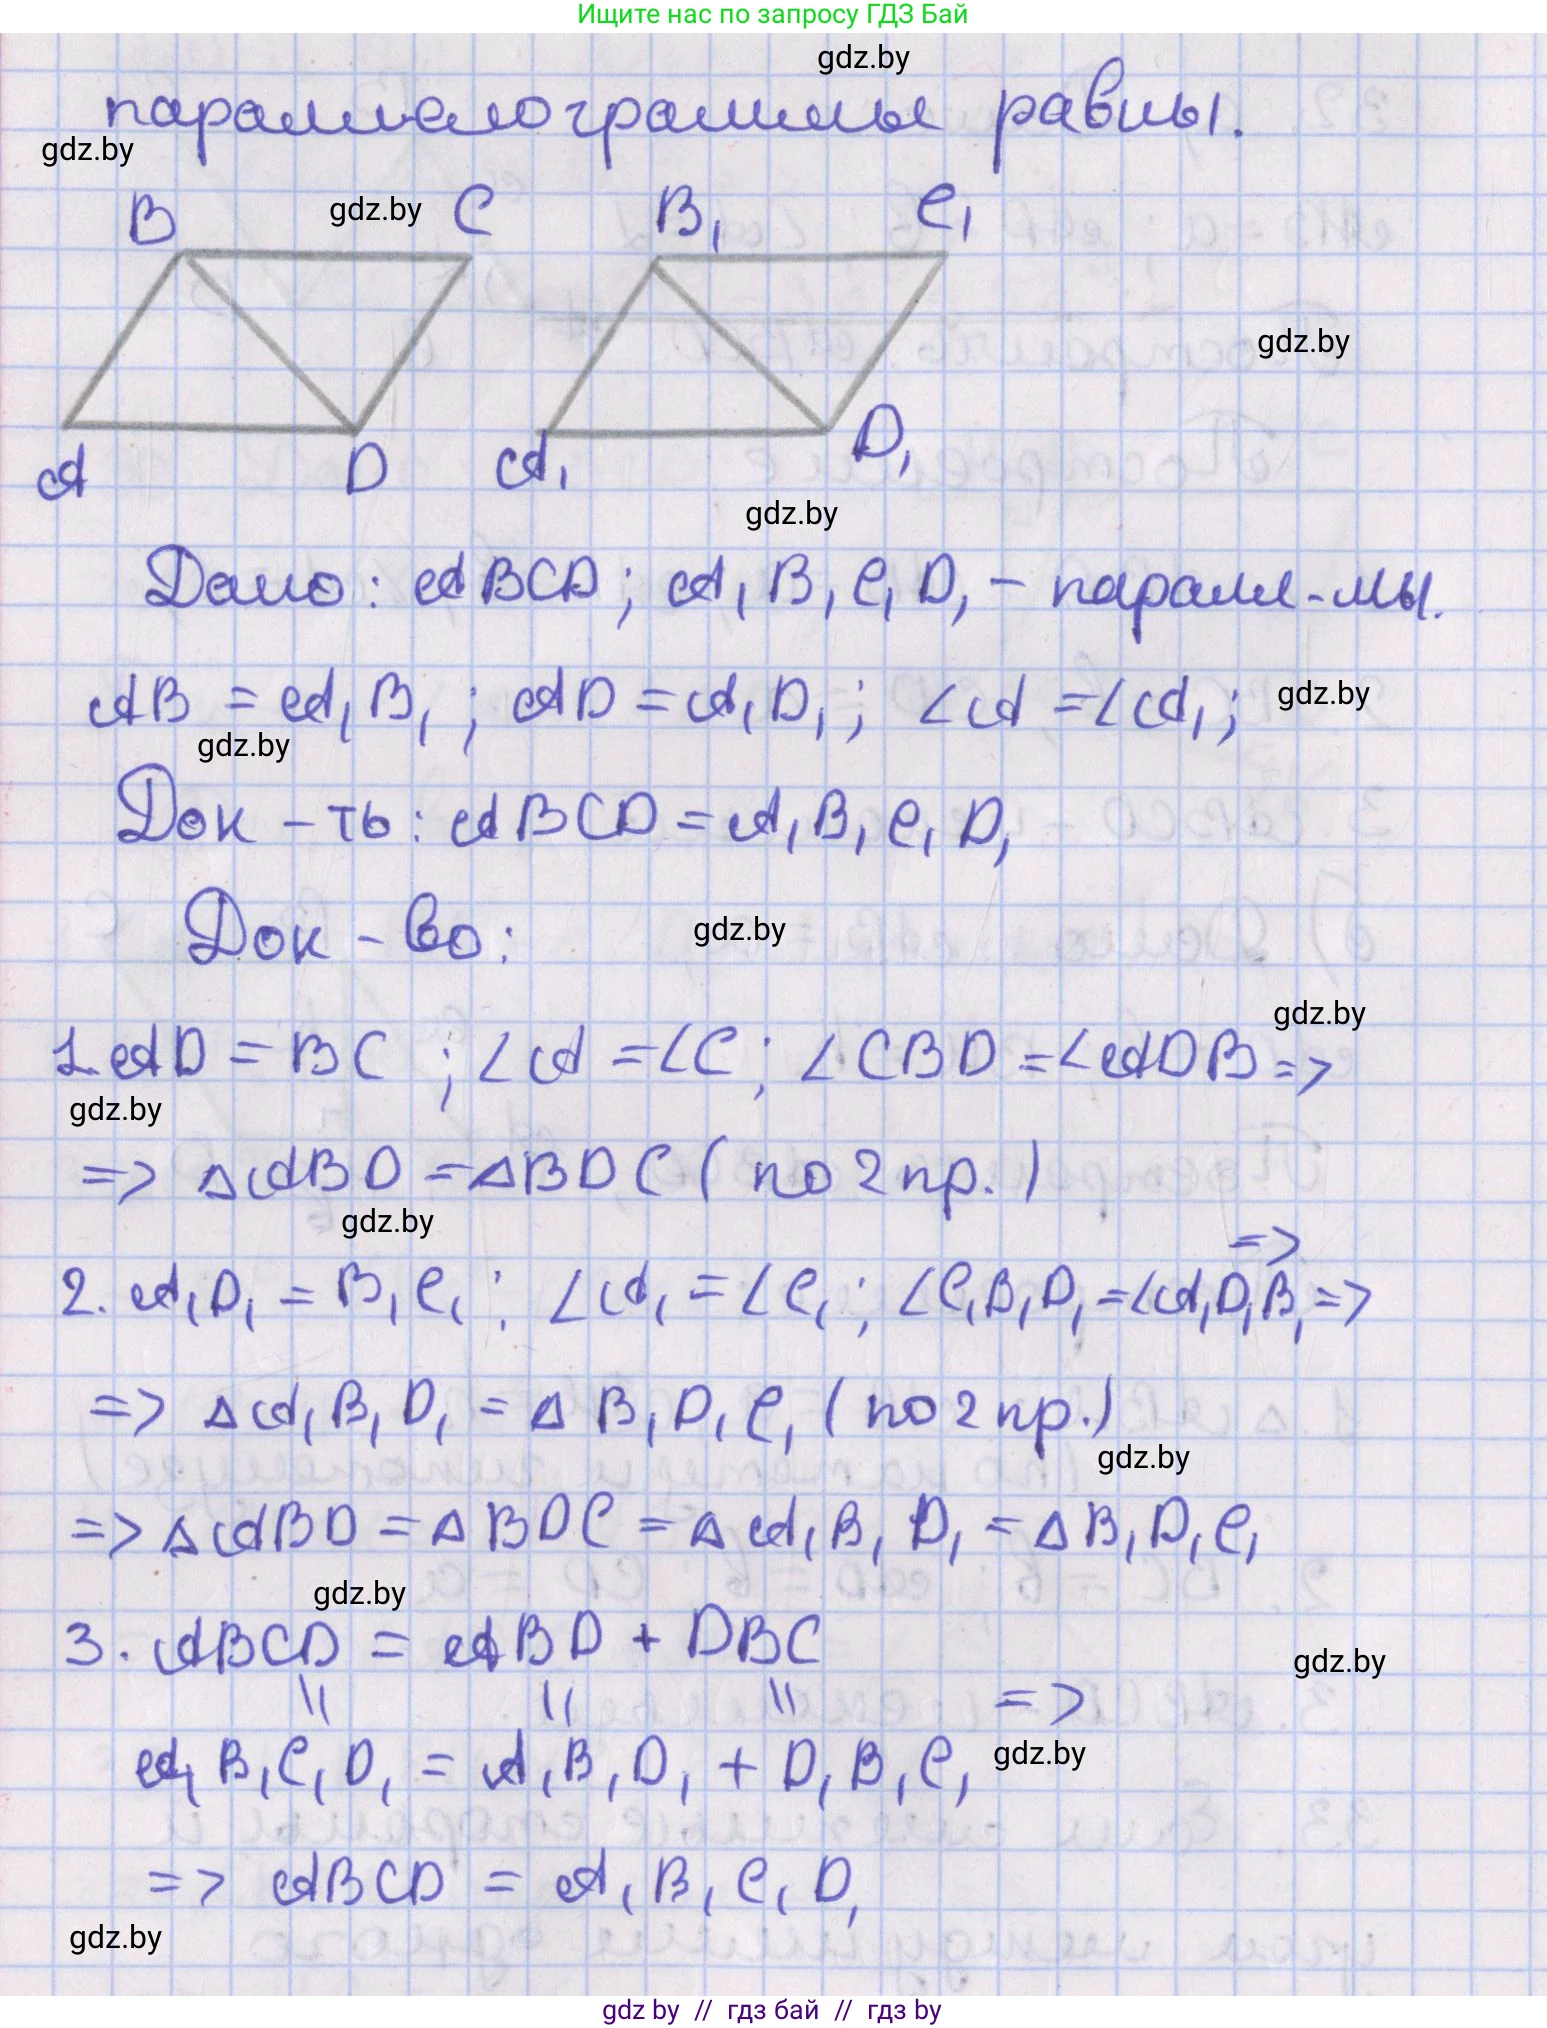 Ищите нас по запросу ГДЗ Бай
gdz.by
параллелограммы равны.
gdz.by
B gdz.by C B₁ C₁
gdz.by
A D A₁ D₁
gdz.by
Дано: ABCD; A₁B₁C₁D₁ – паралл-мы.
AB = A₁B₁; AD = A₁D₁; ∠A = ∠A₁; gdz.by
gdz.by
Док-ть: ABCD = A₁B₁C₁D₁
Док-во: gdz.by
gdz.by
1. AD = BC; ∠A = ∠C; ∠CBD = ∠ADB =>
gdz.by
=> ΔABD = ΔBDC (по 2 пр.)
gdz.by
=>
2. A₁D₁ = B₁C₁; ∠A₁ = ∠C₁; ∠C₁B₁D₁ = ∠A₁D₁B₁ =>
=> ΔA₁B₁D₁ = ΔB₁D₁C₁ (по 2 пр.)
gdz.by
=> ΔABD = ΔBDC = ΔA₁B₁D₁ = ΔB₁D₁C₁
gdz.by
3. ABCD = ABD + DBC
gdz.by
|| || || =>
gdz.by
A₁B₁C₁D₁ = A₁B₁D₁ + D₁B₁C₁
=> ABCD = A₁B₁C₁D₁
gdz.by
gdz by // гдз бай // гдз by